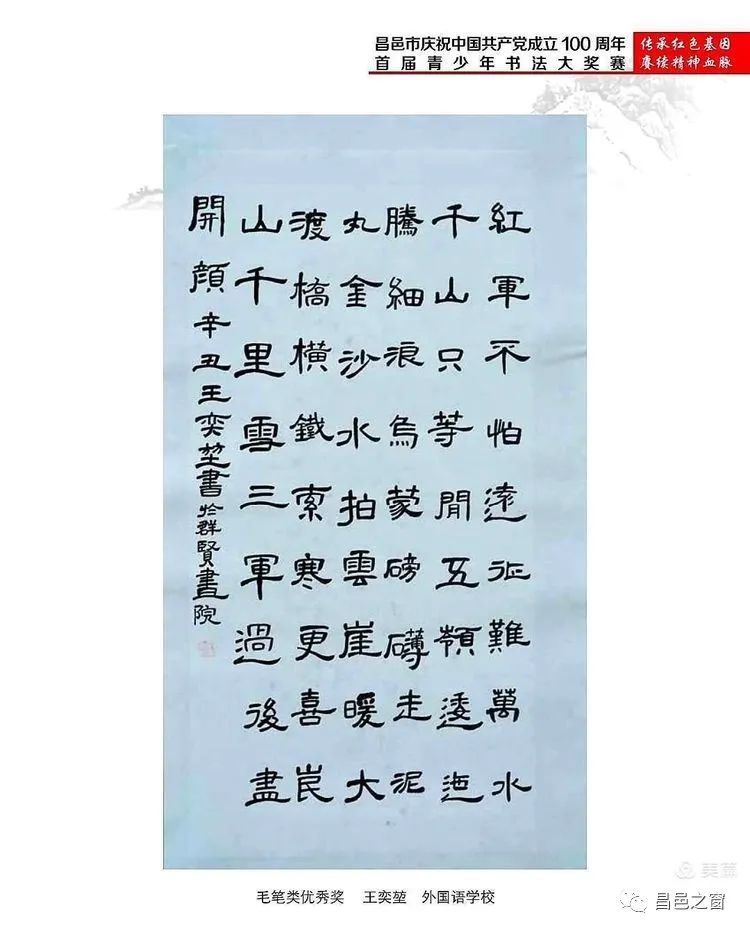 昌邑市庆祝中国共产党成立100周年
首届青少年书法大奖赛
传承红色基因
赓续精神血脉
紅軍不怕遠征難萬水
千山只等閒五嶺逶迤
騰細浪烏蒙磅礴走泥
丸金沙水拍雲崖暖大
渡橋橫鐵索寒更喜岷
山千里雪三軍過後盡
開顏 辛丑王奕堃書於群賢書院
毛笔类优秀奖 王奕堃 外国语学校
美篇
昌邑之窗